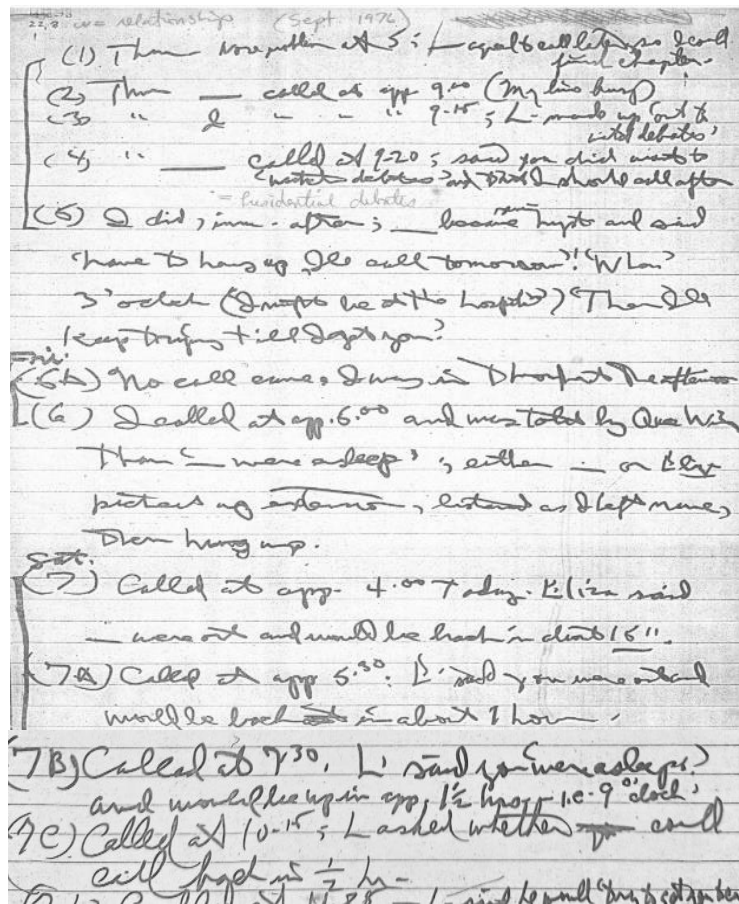 22,8 w= relationships (Sept. 1976)
(1) Thurs. problem at 5; L call later so I could
find chapter.
(2) Thurs __ called at app 9.00 (my line busy)
(3) " I " " " 9-15; L- made up 'out to
debates'
(4) " __ called at 9-20; said you did want to
'watch debates' and that I should call after
= Presidential debates
(5) I did, imm. after; __ became and said
'have to hang up, I'll call tomorrow'! 'When?'
3 o'clock (I might be at the hospital) 'Then I'll
keep trying till I get you'!
Fri.
(5A) No call came, I was in the afternoon
(6) I called at app. 6.00 and was told by
'__ were asleep'; either __ or
picked up extension, listened as I left name,
then hung up.
Sat.
(7) Called at app. 4.00 today. Eliza said
__ were out and would be back in about 15".
(7A) Called at app 5.30. L' said you were out and
would be back in about 1 hour.
(7B) Called at 7 30. L' said you 'were asleep'
and would be up in app. 1½ hrs, i.e. 9 o'clock'
7C) Called at 10-15; L asked whether could
call back in ½ hr-
Called at L- said he would 'try to get